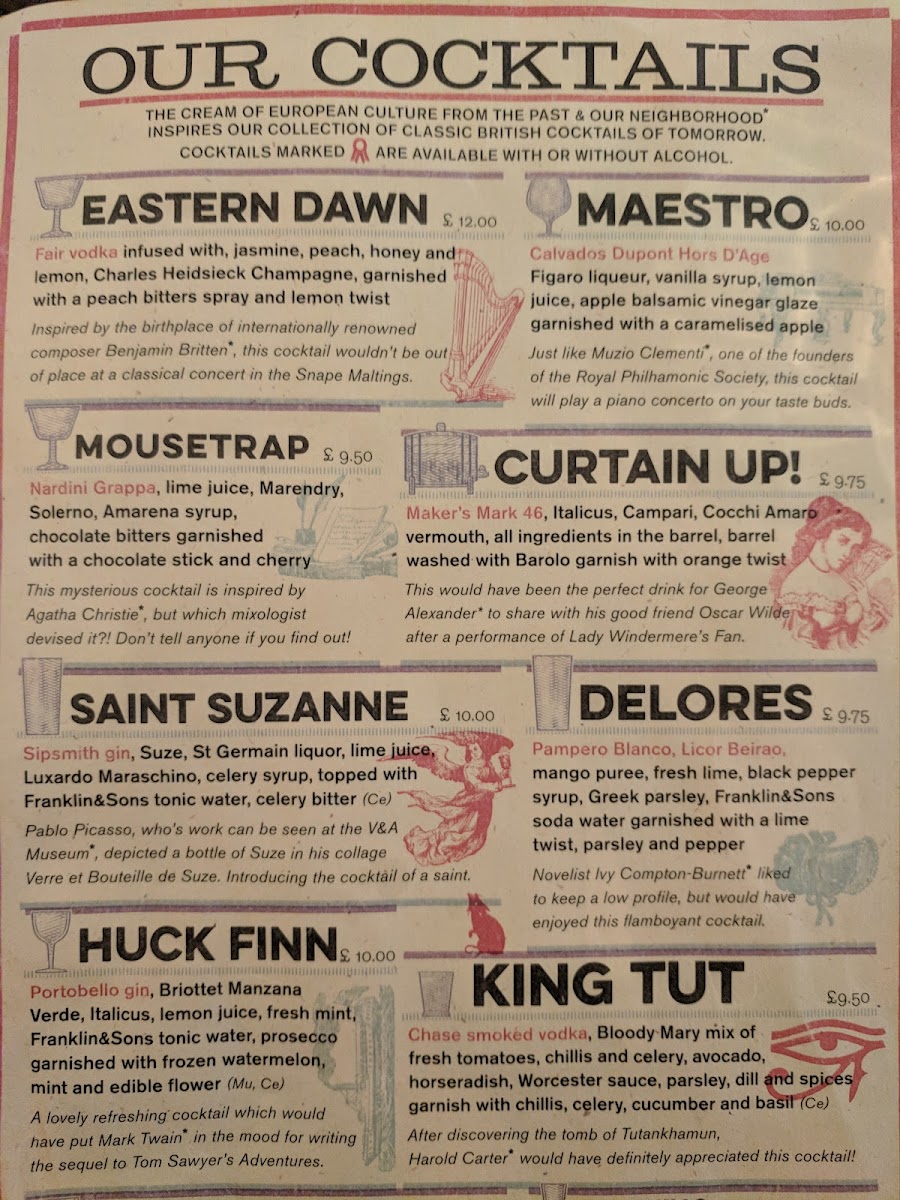 OUR COCKTAILS
THE CREAM OF EUROPEAN CULTURE FROM THE PAST & OUR NEIGHBORHOOD*
INSPIRES OUR COLLECTION OF CLASSIC BRITISH COCKTAILS OF TOMORROW.
COCKTAILS MARKED ARE AVAILABLE WITH OR WITHOUT ALCOHOL.
EASTERN DAWN £ 12.00
Fair vodka infused with, jasmine, peach, honey and
lemon, Charles Heidsieck Champagne, garnished
with a peach bitters spray and lemon twist
Inspired by the birthplace of internationally renowned
composer Benjamin Britten*, this cocktail wouldn't be out
of place at a classical concert in the Snape Maltings.
MAESTRO £ 10.00
Calvados Dupont Hors D'Age
Figaro liqueur, vanilla syrup, lemon
juice, apple balsamic vinegar glaze
garnished with a caramelised apple
Just like Muzio Clementi*, one of the founders
of the Royal Philhamonic Society, this cocktail
will play a piano concerto on your taste buds.
MOUSETRAP £ 9.50
Nardini Grappa, lime juice, Marendry,
Solerno, Amarena syrup,
chocolate bitters garnished
with a chocolate stick and cherry
This mysterious cocktail is inspired by
Agatha Christie*, but which mixologist
devised it?! Don't tell anyone if you find out!
CURTAIN UP! £ 9.75
Maker's Mark 46, Italicus, Campari, Cocchi Amaro
vermouth, all ingredients in the barrel, barrel
washed with Barolo garnish with orange twist
This would have been the perfect drink for George
Alexander* to share with his good friend Oscar Wilde
after a performance of Lady Windermere's Fan.
SAINT SUZANNE £ 10.00
Sipsmith gin, Suze, St Germain liquor, lime juice,
Luxardo Maraschino, celery syrup, topped with
Franklin&Sons tonic water, celery bitter (Ce)
Pablo Picasso, who's work can be seen at the V&A
Museum*, depicted a bottle of Suze in his collage
Verre et Bouteille de Suze. Introducing the cocktail of a saint.
DELORES £ 9.75
Pampero Blanco, Licor Beirao,
mango puree, fresh lime, black pepper
syrup, Greek parsley, Franklin&Sons
soda water garnished with a lime
twist, parsley and pepper
Novelist Ivy Compton-Burnett* liked
to keep a low profile, but would have
enjoyed this flamboyant cocktail.
HUCK FINN £ 10.00
Portobello gin, Briottet Manzana
Verde, Italicus, lemon juice, fresh mint,
Franklin&Sons tonic water, prosecco
garnished with frozen watermelon,
mint and edible flower (Mu, Ce)
A lovely refreshing cocktail which would
have put Mark Twain* in the mood for writing
the sequel to Tom Sawyer's Adventures.
KING TUT £9.50
Chase smoked vodka, Bloody Mary mix of
fresh tomatoes, chillis and celery, avocado,
horseradish, Worcester sauce, parsley, dill and spices
garnish with chillis, celery, cucumber and basil (Ce)
After discovering the tomb of Tutankhamun,
Harold Carter* would have definitely appreciated this cocktail!